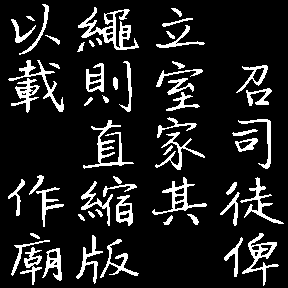 召司徒俾
立室家其
繩則直縮版
以載作廟